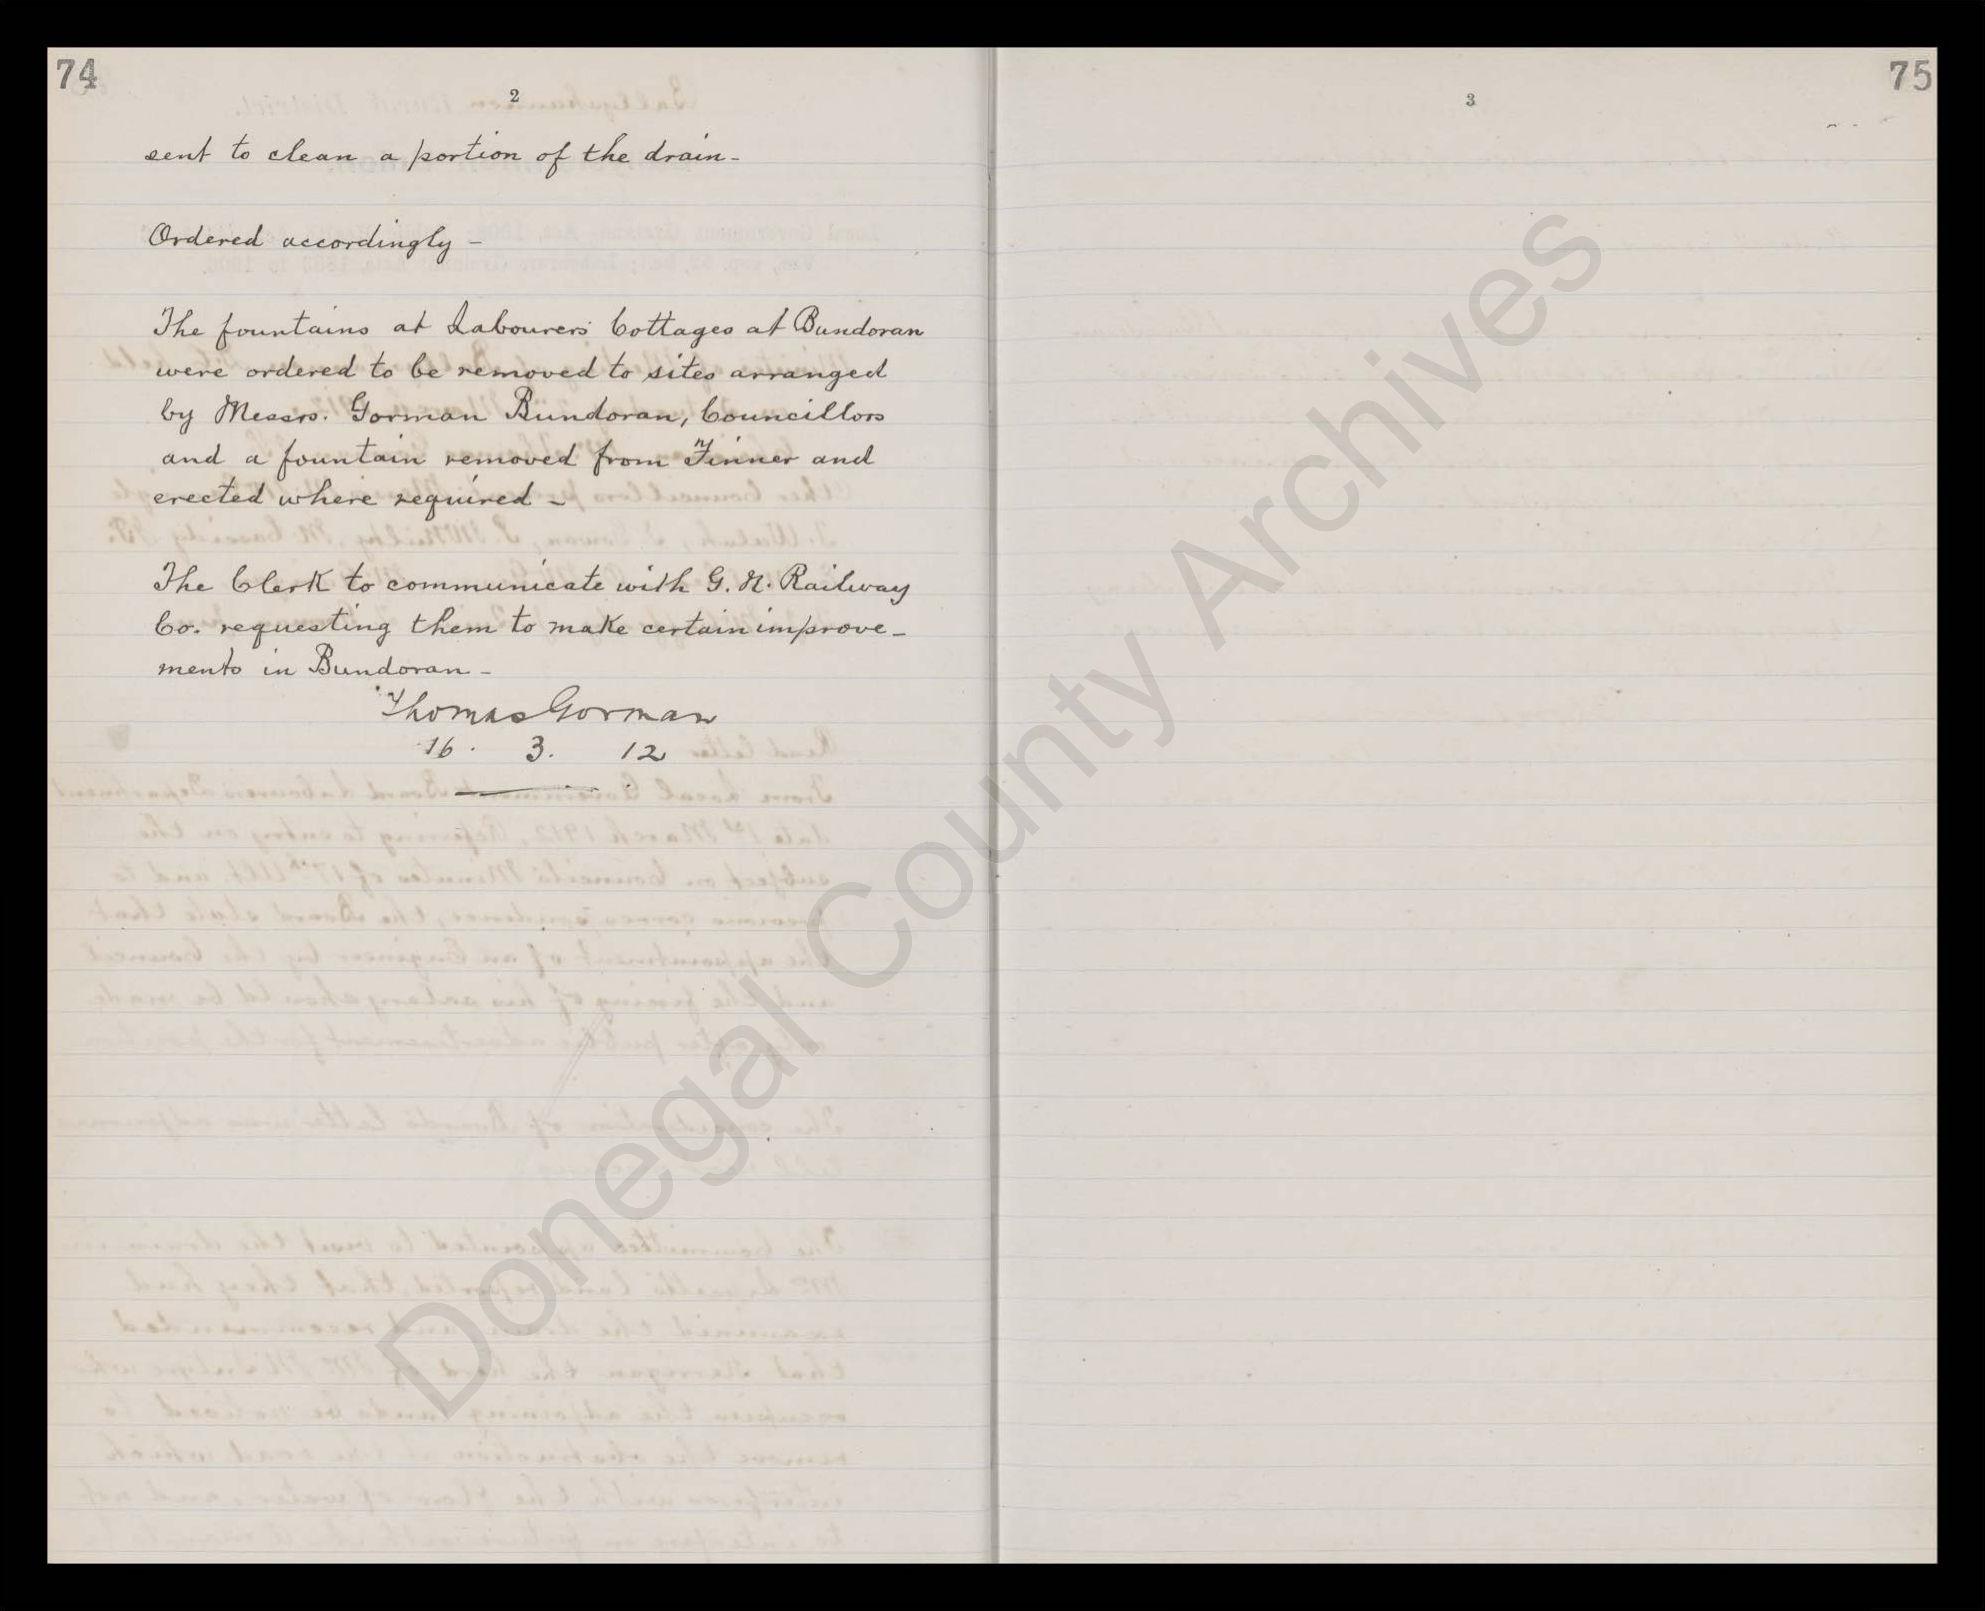 74
2
sent to clean a portion of the drain-
Ordered accordingly -
The fountains at Labourers' Cottages at Bundoran
were ordered to be removed to sites arranged
by Messrs. Gorman Bundoran, Councillors
and a fountain removed from Finner and
erected where required -
The Clerk to communicate with G. N. Railway
Co. requesting them to make certain improve-
ments in Bundoran -
Thomas Gorman
16. 3. 12
75
3
Donegal County Archives